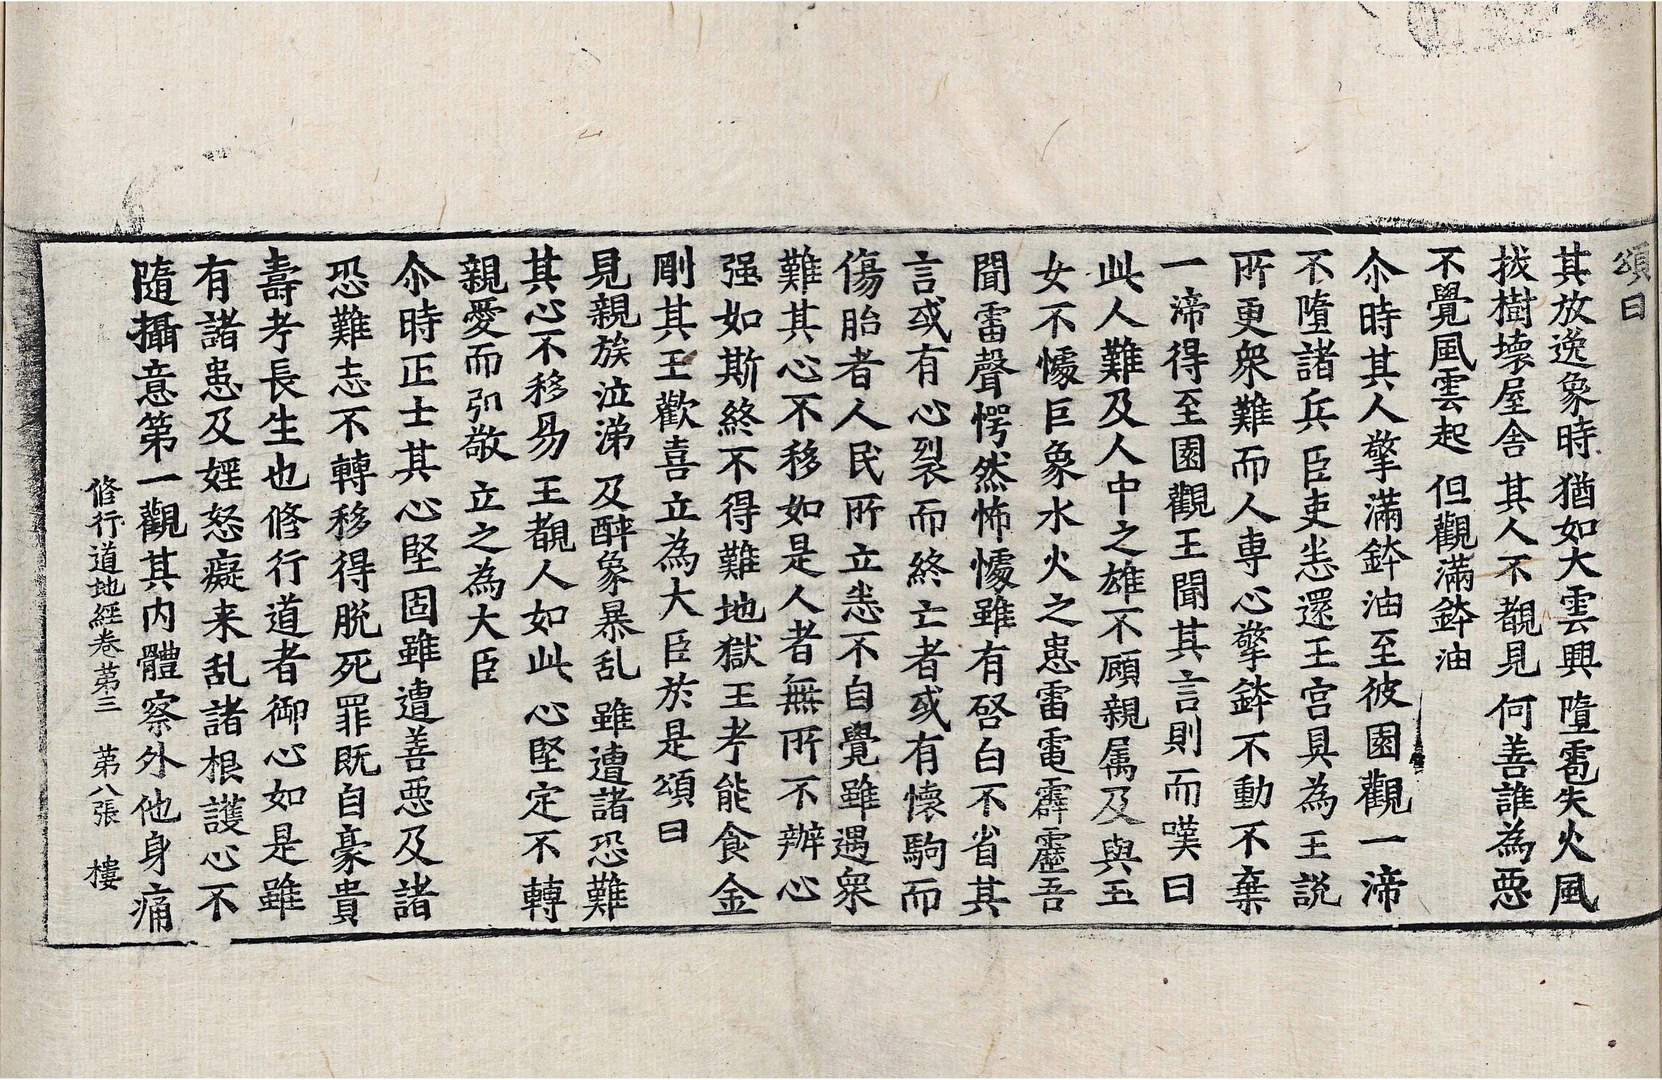 頌曰
其放逸象時 猶如大雲興 墮雹失火風
拔樹壞屋舍 其人不覩見 何善誰為惡
不覺風雲起 但觀滿鉢油
尒時其人擎滿鉢油至彼園觀一渧
不墮諸兵臣吏悉還王宮具為王說
所更衆難而人專心擎鉢不動不棄
一渧得至園觀王聞其言則而嘆曰
此人難及人中之雄不顧親属及與玉
女不懅巨象水火之患雷電霹靂吾
聞雷聲愕然怖懅雖有啓白不省其
言或有心裂而終亡者或有懷駒而
傷胎者人民所立悉不自覺雖遇衆
難其心不移如是人者無所不辦心
强如斯終不得難地獄王考能食金
剛其王歡喜立為大臣於是頌曰
見親族泣涕 及醉象暴乱 雖遭諸恐難
其心不移易 王覩人如此 心堅定不轉
親愛而引敬 立之為大臣
尒時正士其心堅固雖遭善惡及諸
恐難志不轉移得脫死罪既自豪貴
壽考長生也修行道者御心如是雖
有諸患及婬怒癡来乱諸根護心不
隨攝意第一觀其內體察外他身痛
修行道地經卷第三 第八張 樓